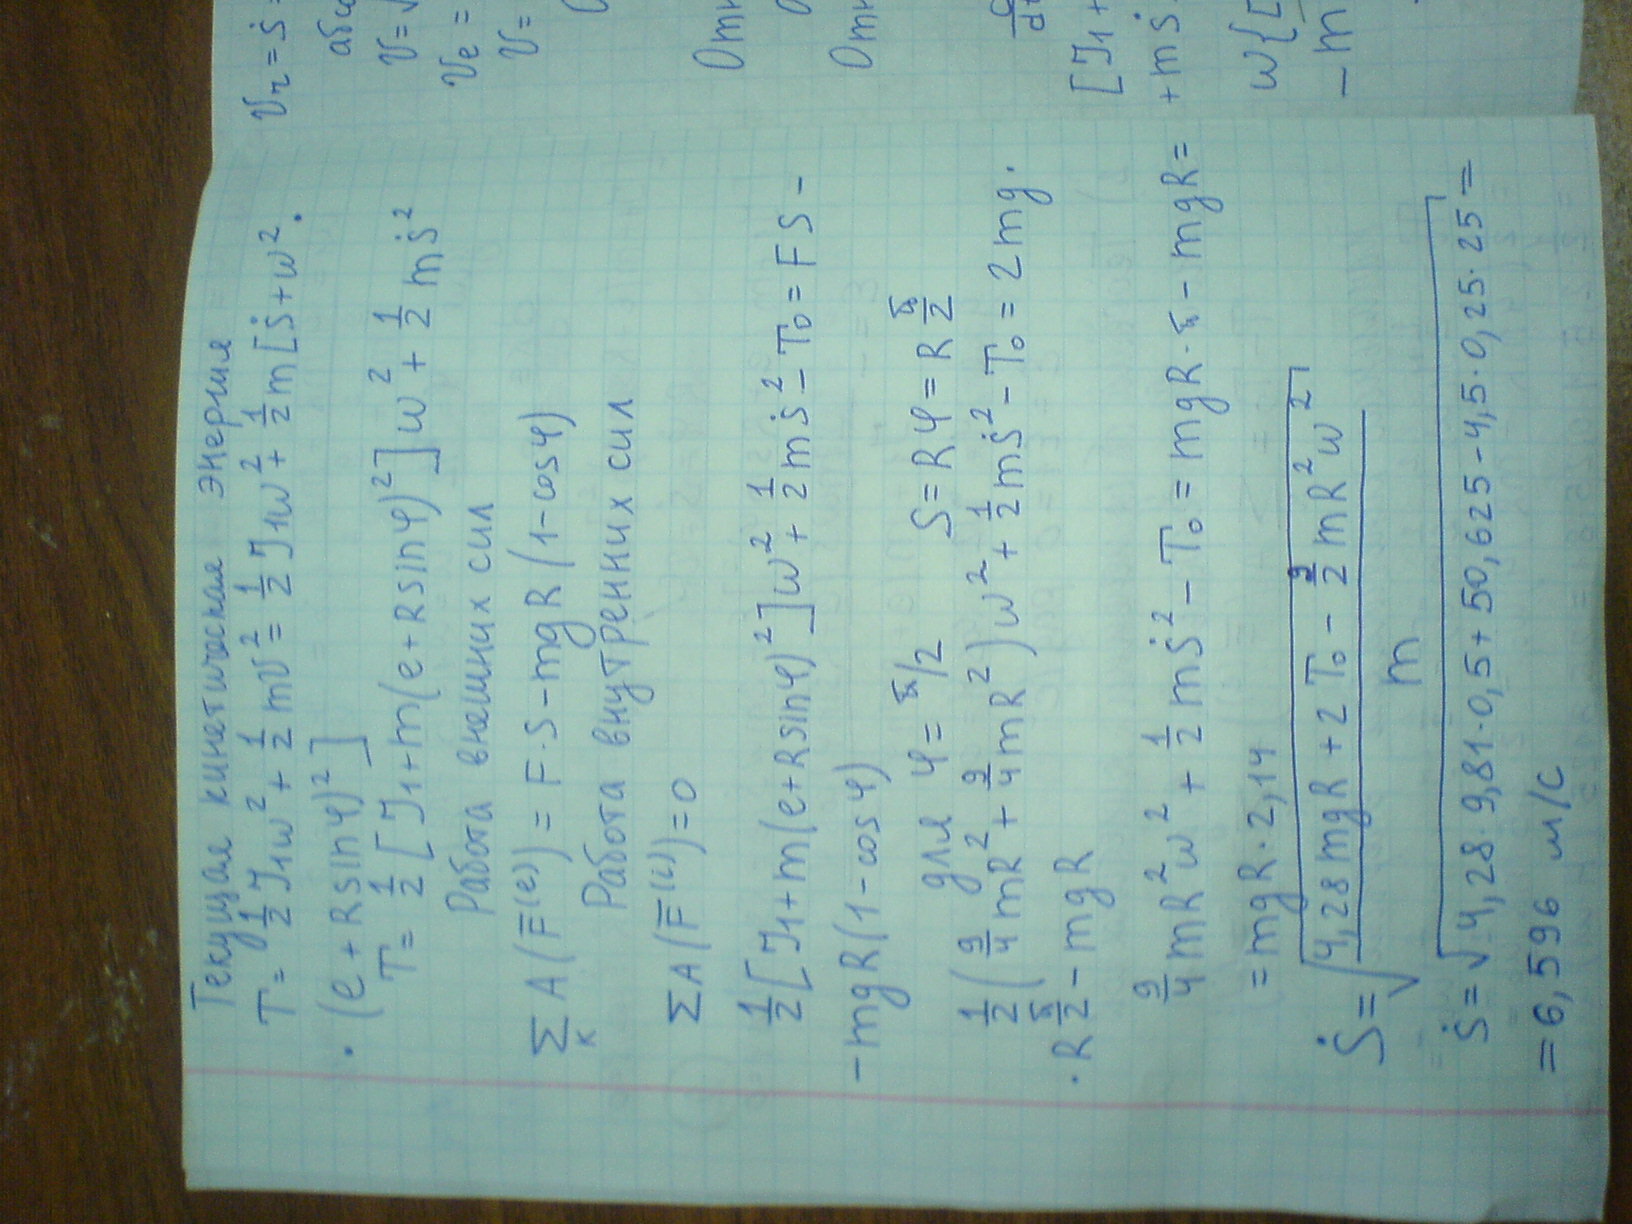 Текущая кинетическая энергия
T = 1/2 J₁ω² + 1/2 mv² = 1/2 J₁ω² + 1/2 m[ṡ + ω².
· (e + R sinφ)²]
T = 1/2 [J₁ + m(e + R sinφ)²]ω² + 1/2 mṡ²
Работа внешних сил
∑ₖ A(F̅⁽ᵉ⁾) = F·S - mgR(1 - cosφ)
Работа внутренних сил
∑A(F̅⁽ⁱ⁾) = 0
1/2 [J₁ + m(e + R sinφ)²]ω² + 1/2 mṡ² - T₀ = FS -
- mgR(1 - cosφ)
для φ = π/2 S = Rφ = R π/2
1/2 (9/4 mR² + 9/4 mR²)ω² + 1/2 mṡ² - T₀ = 2mg·
· R π/2 - mgR
9/4 mR²ω² + 1/2 mṡ² - T₀ = mgR·π - mgR =
= mgR·2,14
ṡ = √(4,28mgR + 2T₀ - 9/2 mR²ω²)/m
ṡ = √4,28·9,81·0,5 + 50,625 - 4,5·0,25·25 =
= 6,596 м/с
vᵣ = ṡ
абс
v = √
vₑ =
v =
Отн
Отн
d/dt
[J₁ +
+ mṡ
ω{[
- m